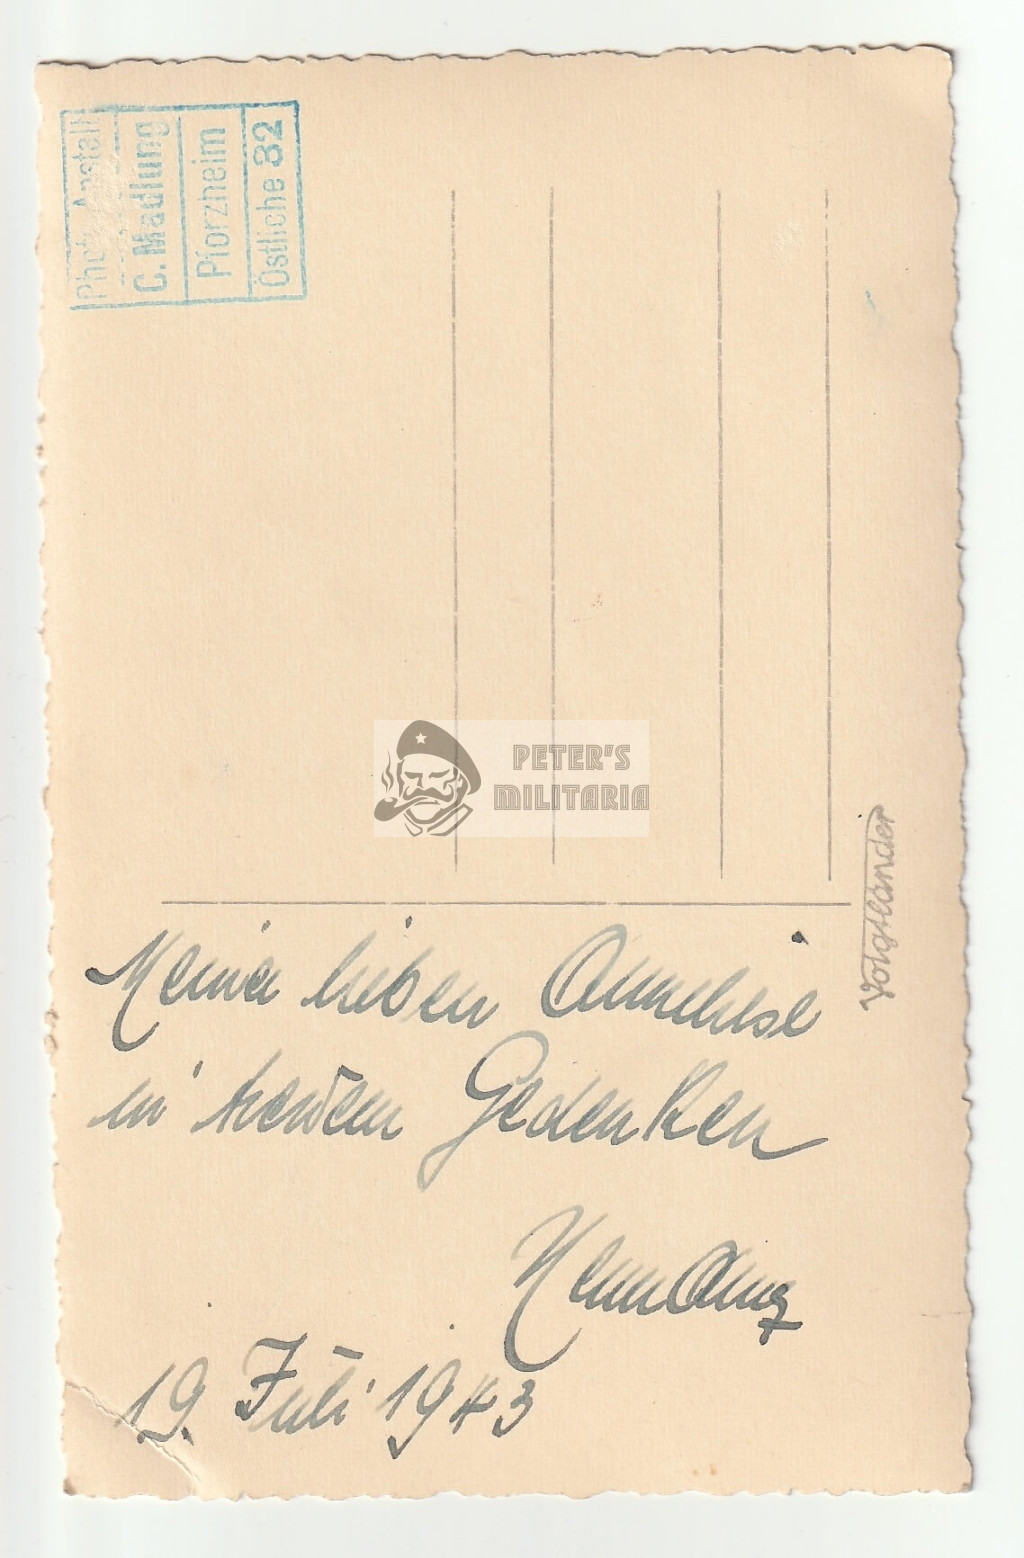 Photo-Anstalt
C. Madlung
Pforzheim
Östliche 32
PETER'S
MILITARIA
Voigtländer
Meiner lieben Anneliese
in treuem Gedenken
19. Juli 1943